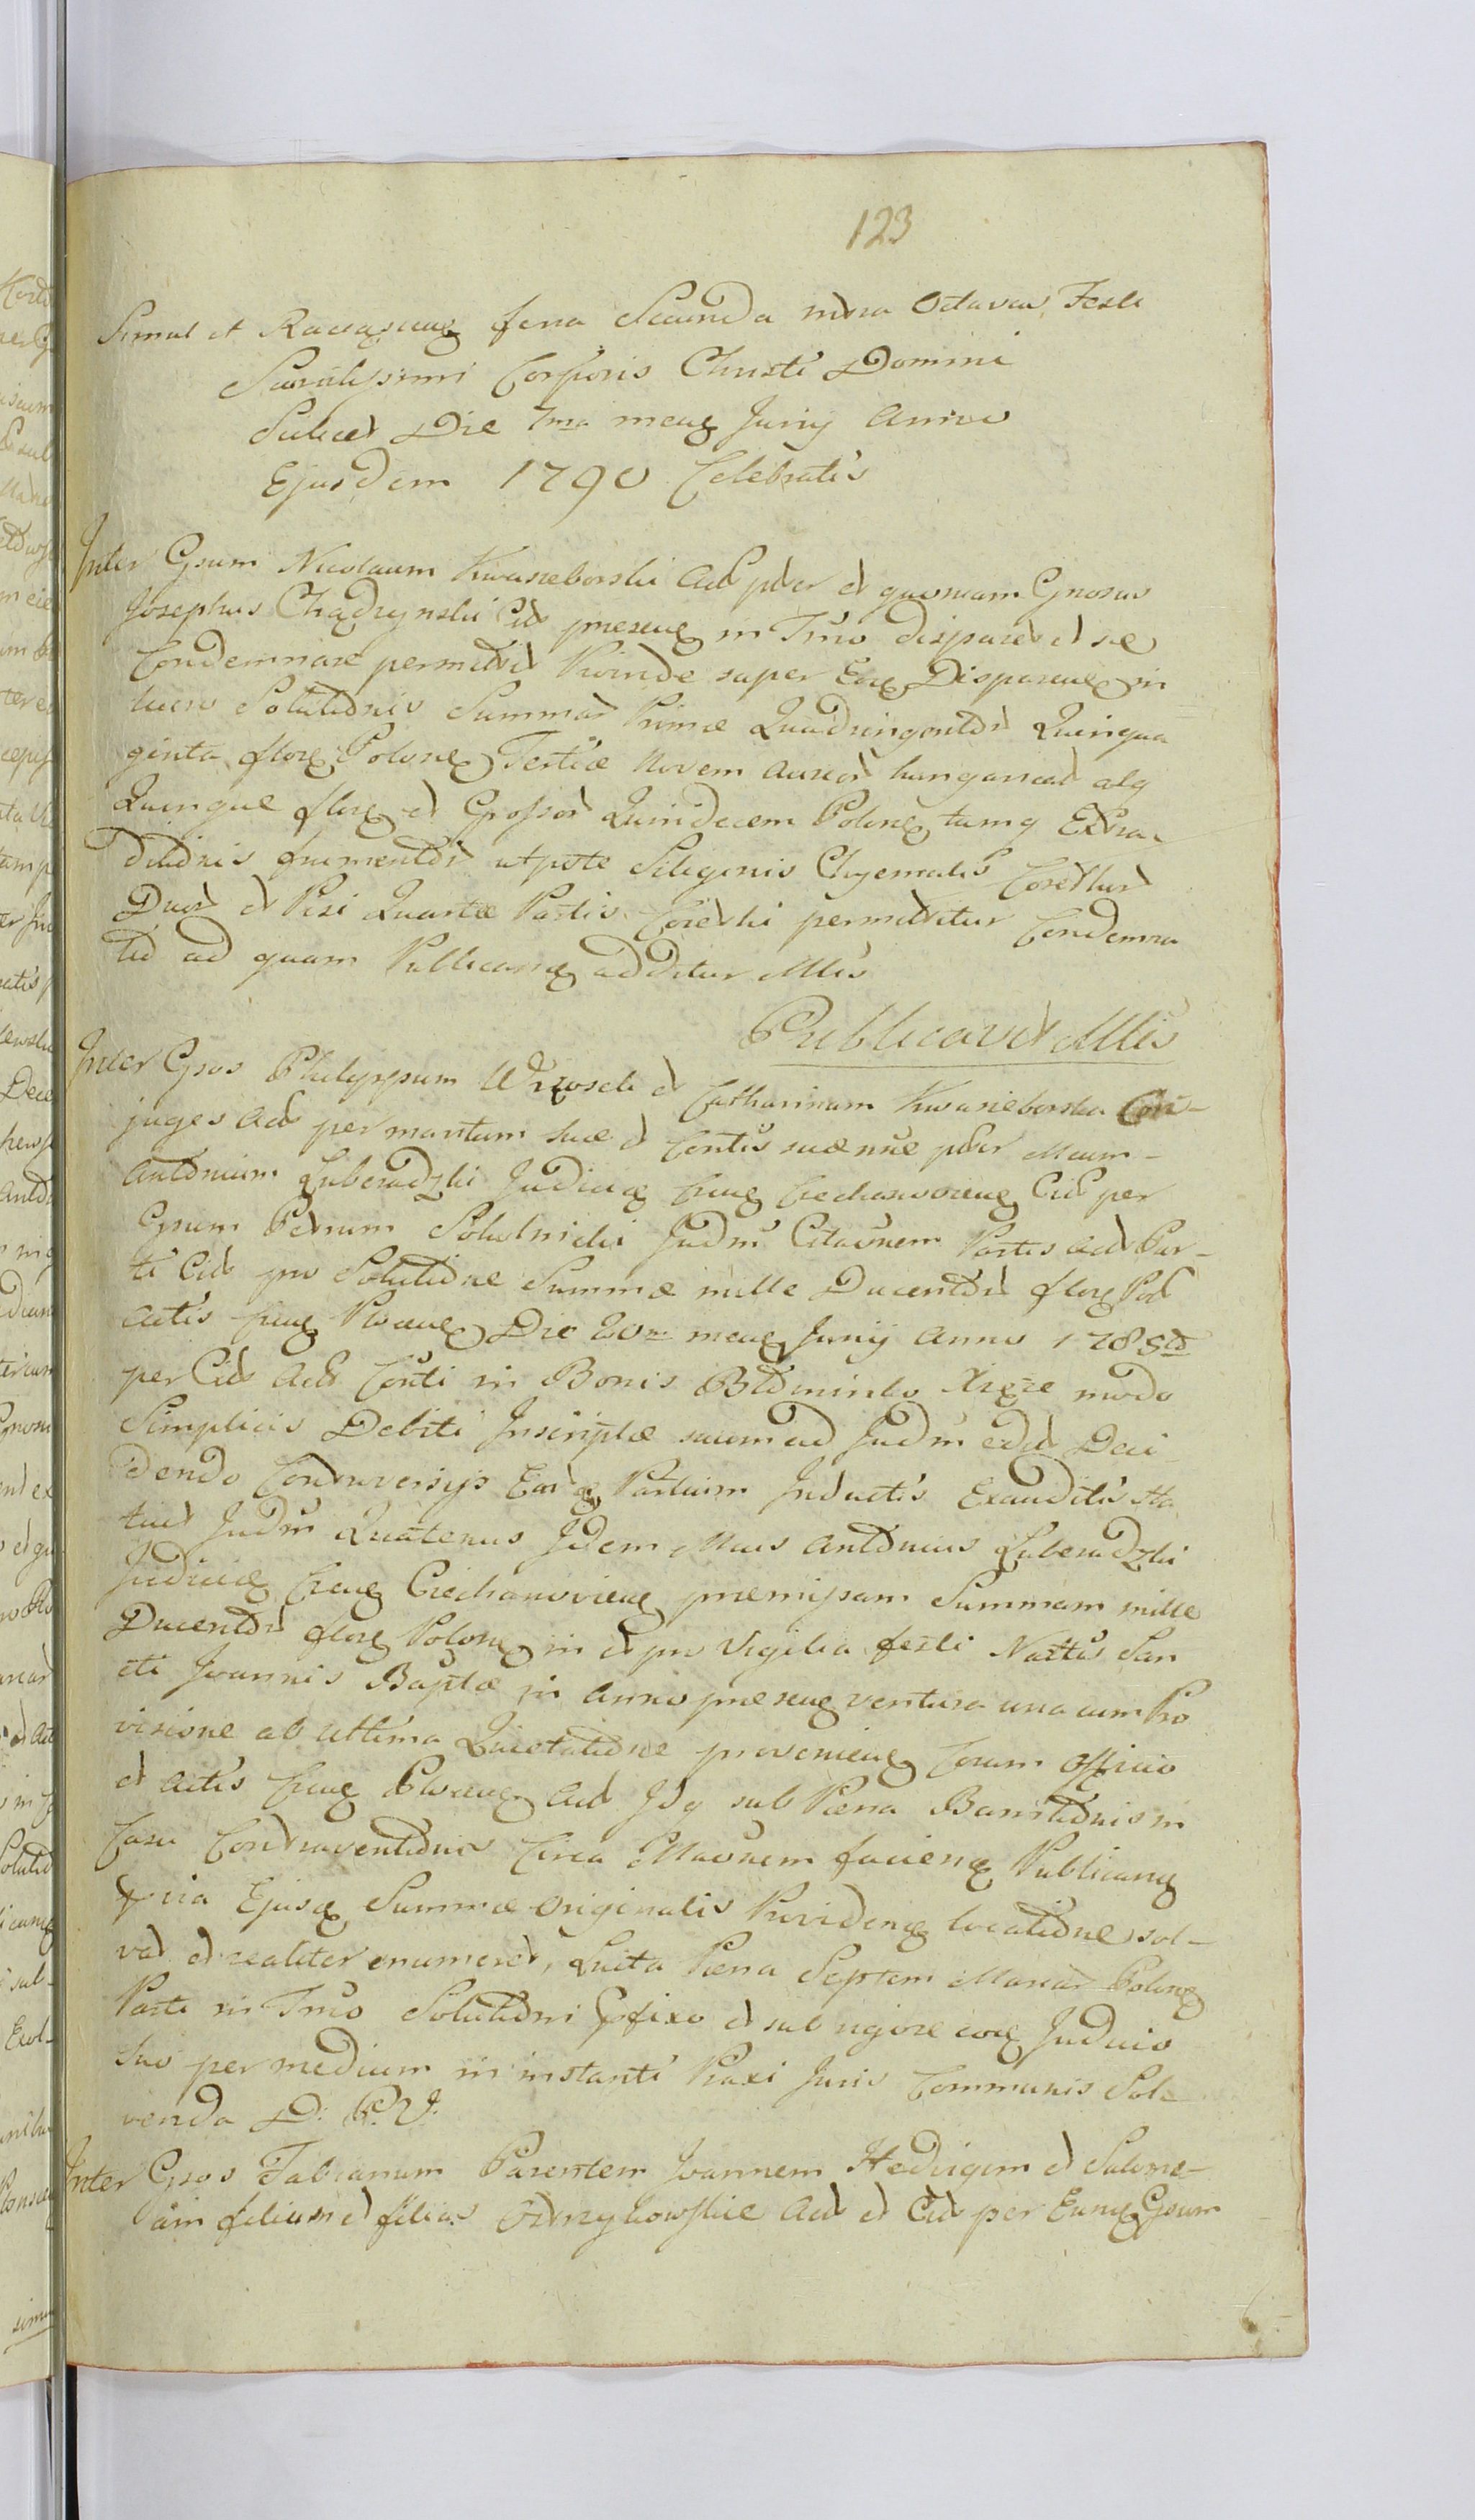 123
Simul et Raciąsen feria Secunda infra Octavas Festi
Sacratissimi Corporis Christi Domini
Scilicet Die 7ma mens Junij Anno
Ejusdem 1790 Celebratis
Inter Gsum Nicolaum Kwasieborski Act pter et quoniam Gnosus
Josephus Chądzynski Cit presens in Tmo disparet et se
Condemnare permittit Proinde super Eoq Disparen in
lucro Solutionis Summar Primæ Quadringentor Quinqua
ginta flor Polon Tertiæ Novem Aureor hungarical alq
Quinque flor et Grossor Quindecem Polon tumq Extra
ditionis frumentor utpote Siliginis Chyemalis Corethor
Duor et Pisi Quartæ Partis Corethi permittitur Condemna
tio ad quam Publicand additur Mlis
Publicavit Mlis
Inter Gsos Philippum Wrzosek et Catharinam Kwasieborska Con-
juges Act per maritum suæ et Contis suæ nne pter Mcum-
Antonium Luberadzki Judicem Cren Ciechanovien Cit per
Gsum Petrum Sokolnicki Judm Citaonem Partis Act Par-
ti Cit pro Solutione Summæ mille Ducentor flor Pol
Actis Cren Plocen Die 20ma mens Junij Anno 1785to
per Cit Act Conti in Bonis Bldminko Xięże modo
Simplicis Debiti Inscriptæ suum ad Judm edit Deci
dendo Controversijs Eard Partium Inductis Exauditis Sta
tuit Judm Quatenus Idem Mcus Antonius Luberadzki
Judicem Cren Ciechanovien premissam Summam mille
Ducentor flor Polon in et pro Vigilia festi Nattis San
cti Joannis Baptæ in Anno presen ventura una cum Pro
visione ab Ultima Quietatione provenien Coram Officio
et Actis Cren Plocen Act Idq sub Pæna Bannitionis in
Casu Contraventionis Circa Maonem faciend Publicand
pria Ejusd Summæ Originalis Providend locatione sol-
vat et realiter enumeret, Luita Pæna Septem Marcar Polon
Parti in Tmo Solutioni pfixo et sub rigore eoq Judicio
suo per medium in instanti Praxi Juris Communis Sol-
venda D: P. J.
Inter Gsos Fabianum Parentem Joannem Hedvigim et Salome-
am filium et filias Ostrzykowskie Act et Cit per Eund Gsum